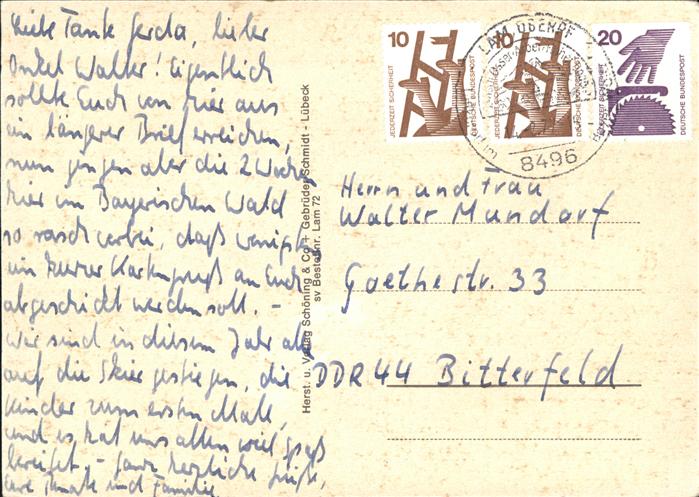 Liebe Tante Gerda, lieber
Onkel Walter! Eigentlich
sollte Euch von hier aus
ein längerer Brief erreichen,
nun gingen aber die 2 Wochen
hier im Bayerischen Wald
so rasch vorbei, daß wenigstens
ein kurzer Kartengruß an Euch
abgeschickt werden soll. -
Wir sind in diesem Jahr alle
auf die Skier gestiegen, die
Kinder zum ersten Male,
und es hat uns allen viel Spaß
bereitet. - Ganz herzliche Grüße,
Eure und Familie
Herst. u. Verlag Schöning & Co + Gebrüder Schmidt - Lübeck
sv Bestellnr. Lam 72
10
JEDERZEIT SICHERHEIT
DEUTSCHE BUNDESPOST
10
JEDERZEIT SICHERHEIT
DEUTSCHE BUNDESPOST
20
JEDERZEIT SICHERHEIT
DEUTSCHE BUNDESPOST
LAM, OBERPF
8496
Herrn und Frau
Walter Mundorf
Goethestr. 33
DDR 44 Bitterfeld